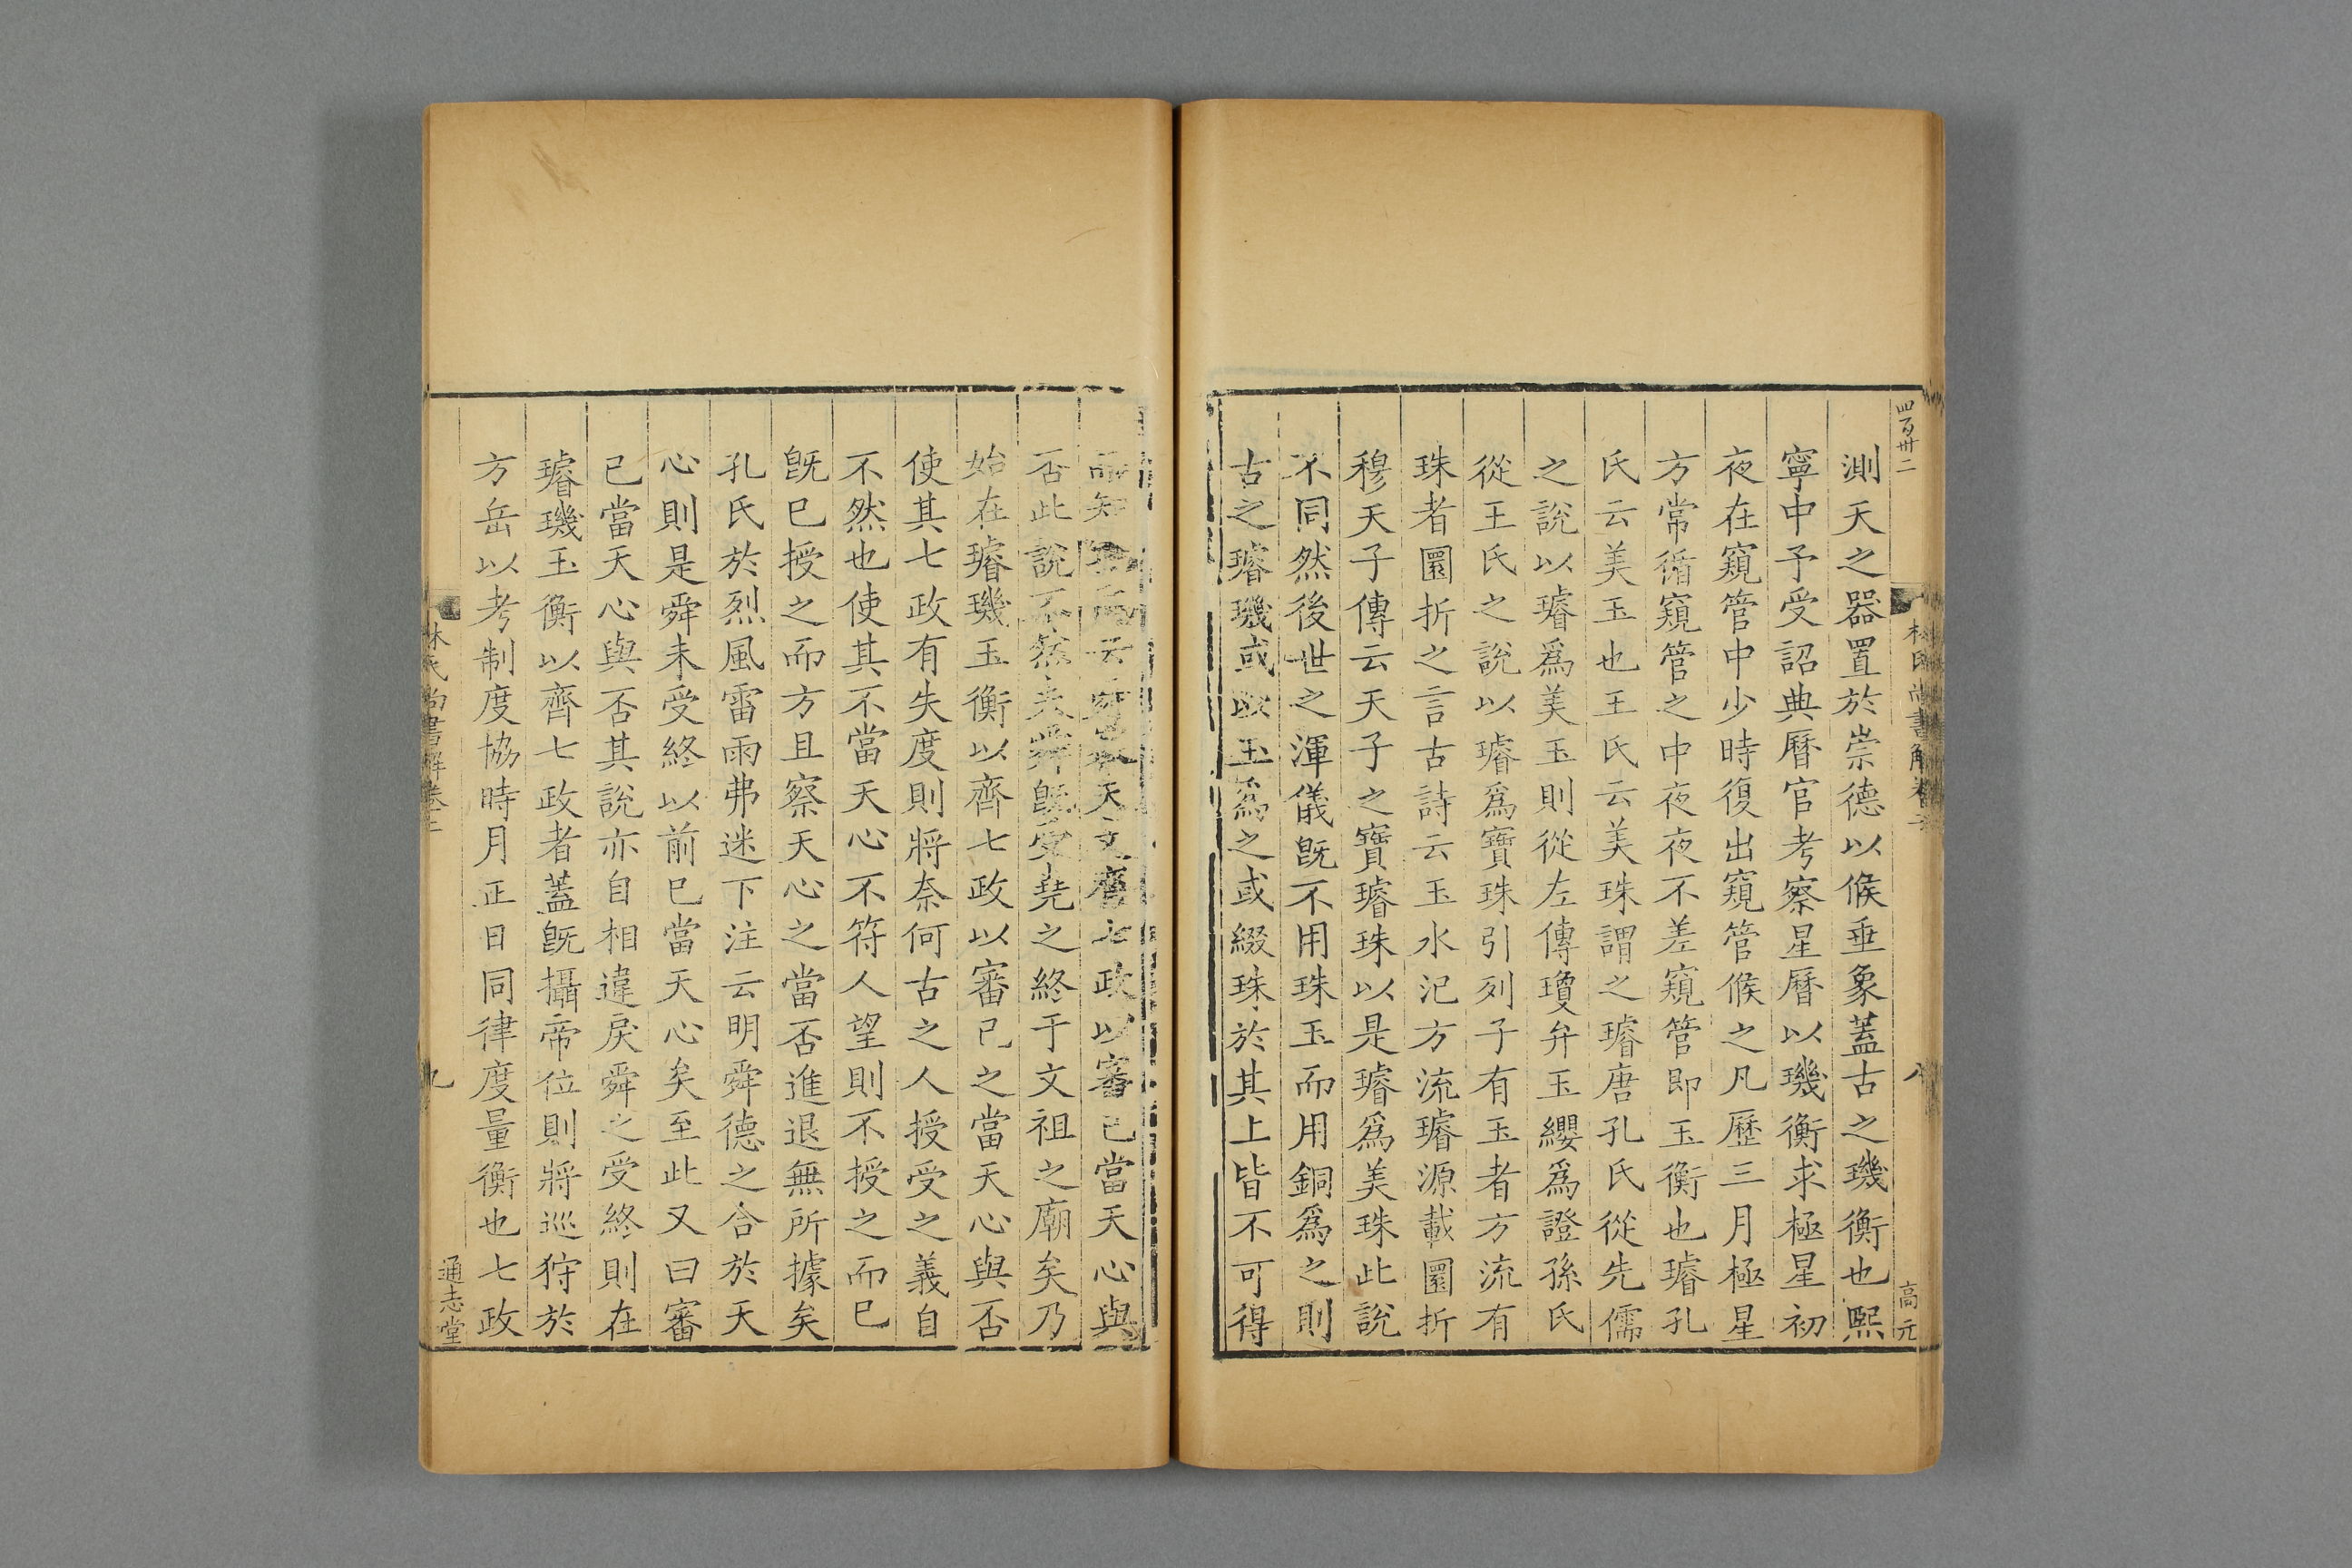 四百卅二
測天之器置於崇德以候垂象蓋古之璣衡也熙
寧中予受詔典曆官考察星曆以璣衡求極星初
夜在窺管中少時復出窺管候之凡歷三月極星
方常循窺管之中夜夜不差窺管即玉衡也璿孔
氏云美玉也王氏云美珠謂之璿唐孔氏從先儒
之說以璿爲美玉則從左傳瓊弁玉纓爲證孫氏
從王氏之說以璿爲寶珠引列子有玉者方流有
珠者圜折之言古詩云玉水汜方流璿源載圜折
穆天子傳云天子之寶璿珠以是璿爲美珠此說
不同然後世之渾儀旣不用珠玉而用銅爲之則
古之璿璣或以玉爲之或綴珠於其上皆不可得
林氏尚書解卷
八
高元
而知 云 天文齊七政以審己當天心與
否此說不然夫舜旣受堯之終于文祖之廟矣乃
始在璿璣玉衡以齊七政以審己之當天心與否
使其七政有失度則將奈何古之人授受之義自
不然也使其不當天心不符人望則不授之而已
旣已授之而方且察天心之當否進退無所據矣
孔氏於烈風雷雨弗迷下注云明舜德之合於天
心則是舜未受終以前已當天心矣至此又曰審
己當天心與否其說亦自相違戾舜之受終則在
璿璣玉衡以齊七政者蓋旣攝帝位則將巡狩於
方岳以考制度協時月正日同律度量衡也七政
林氏尚書解卷二
九
通志堂